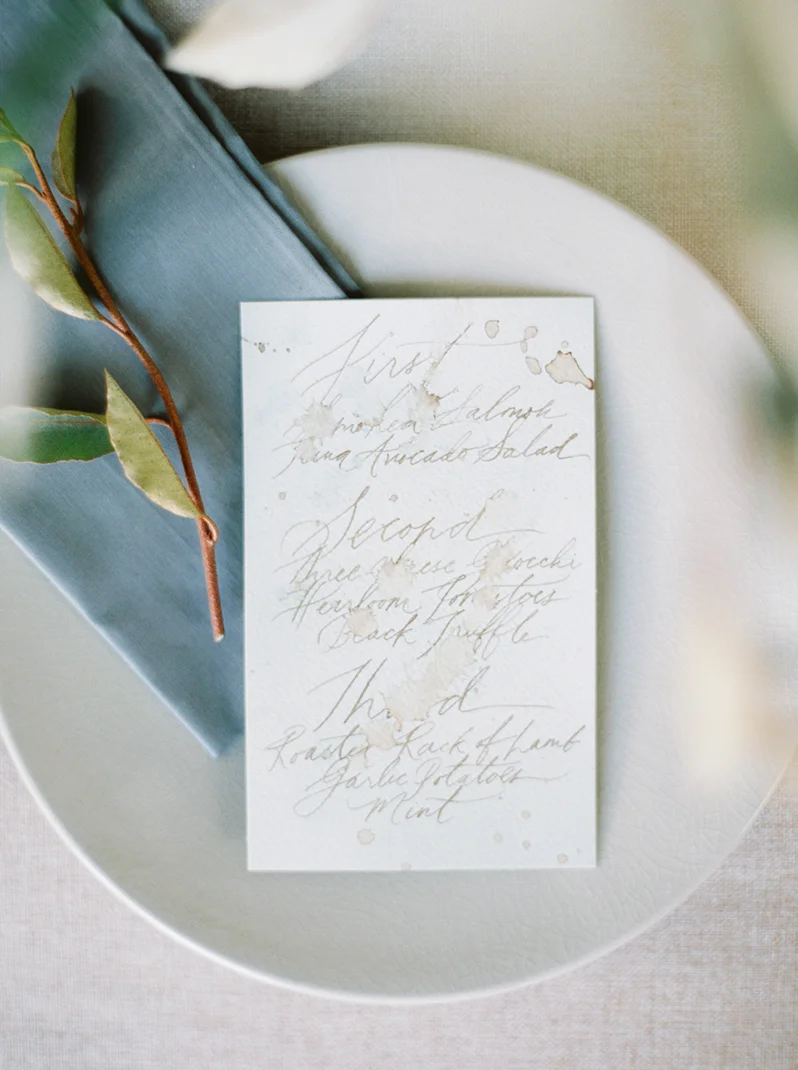 First
Smoked Salmon
Tuna Avocado Salad
Second
Three Cheese Gnocchi
Heirloom Tomatoes
Black Truffle
Third
Roasted Rack of Lamb
Garlic Potatoes
Mint